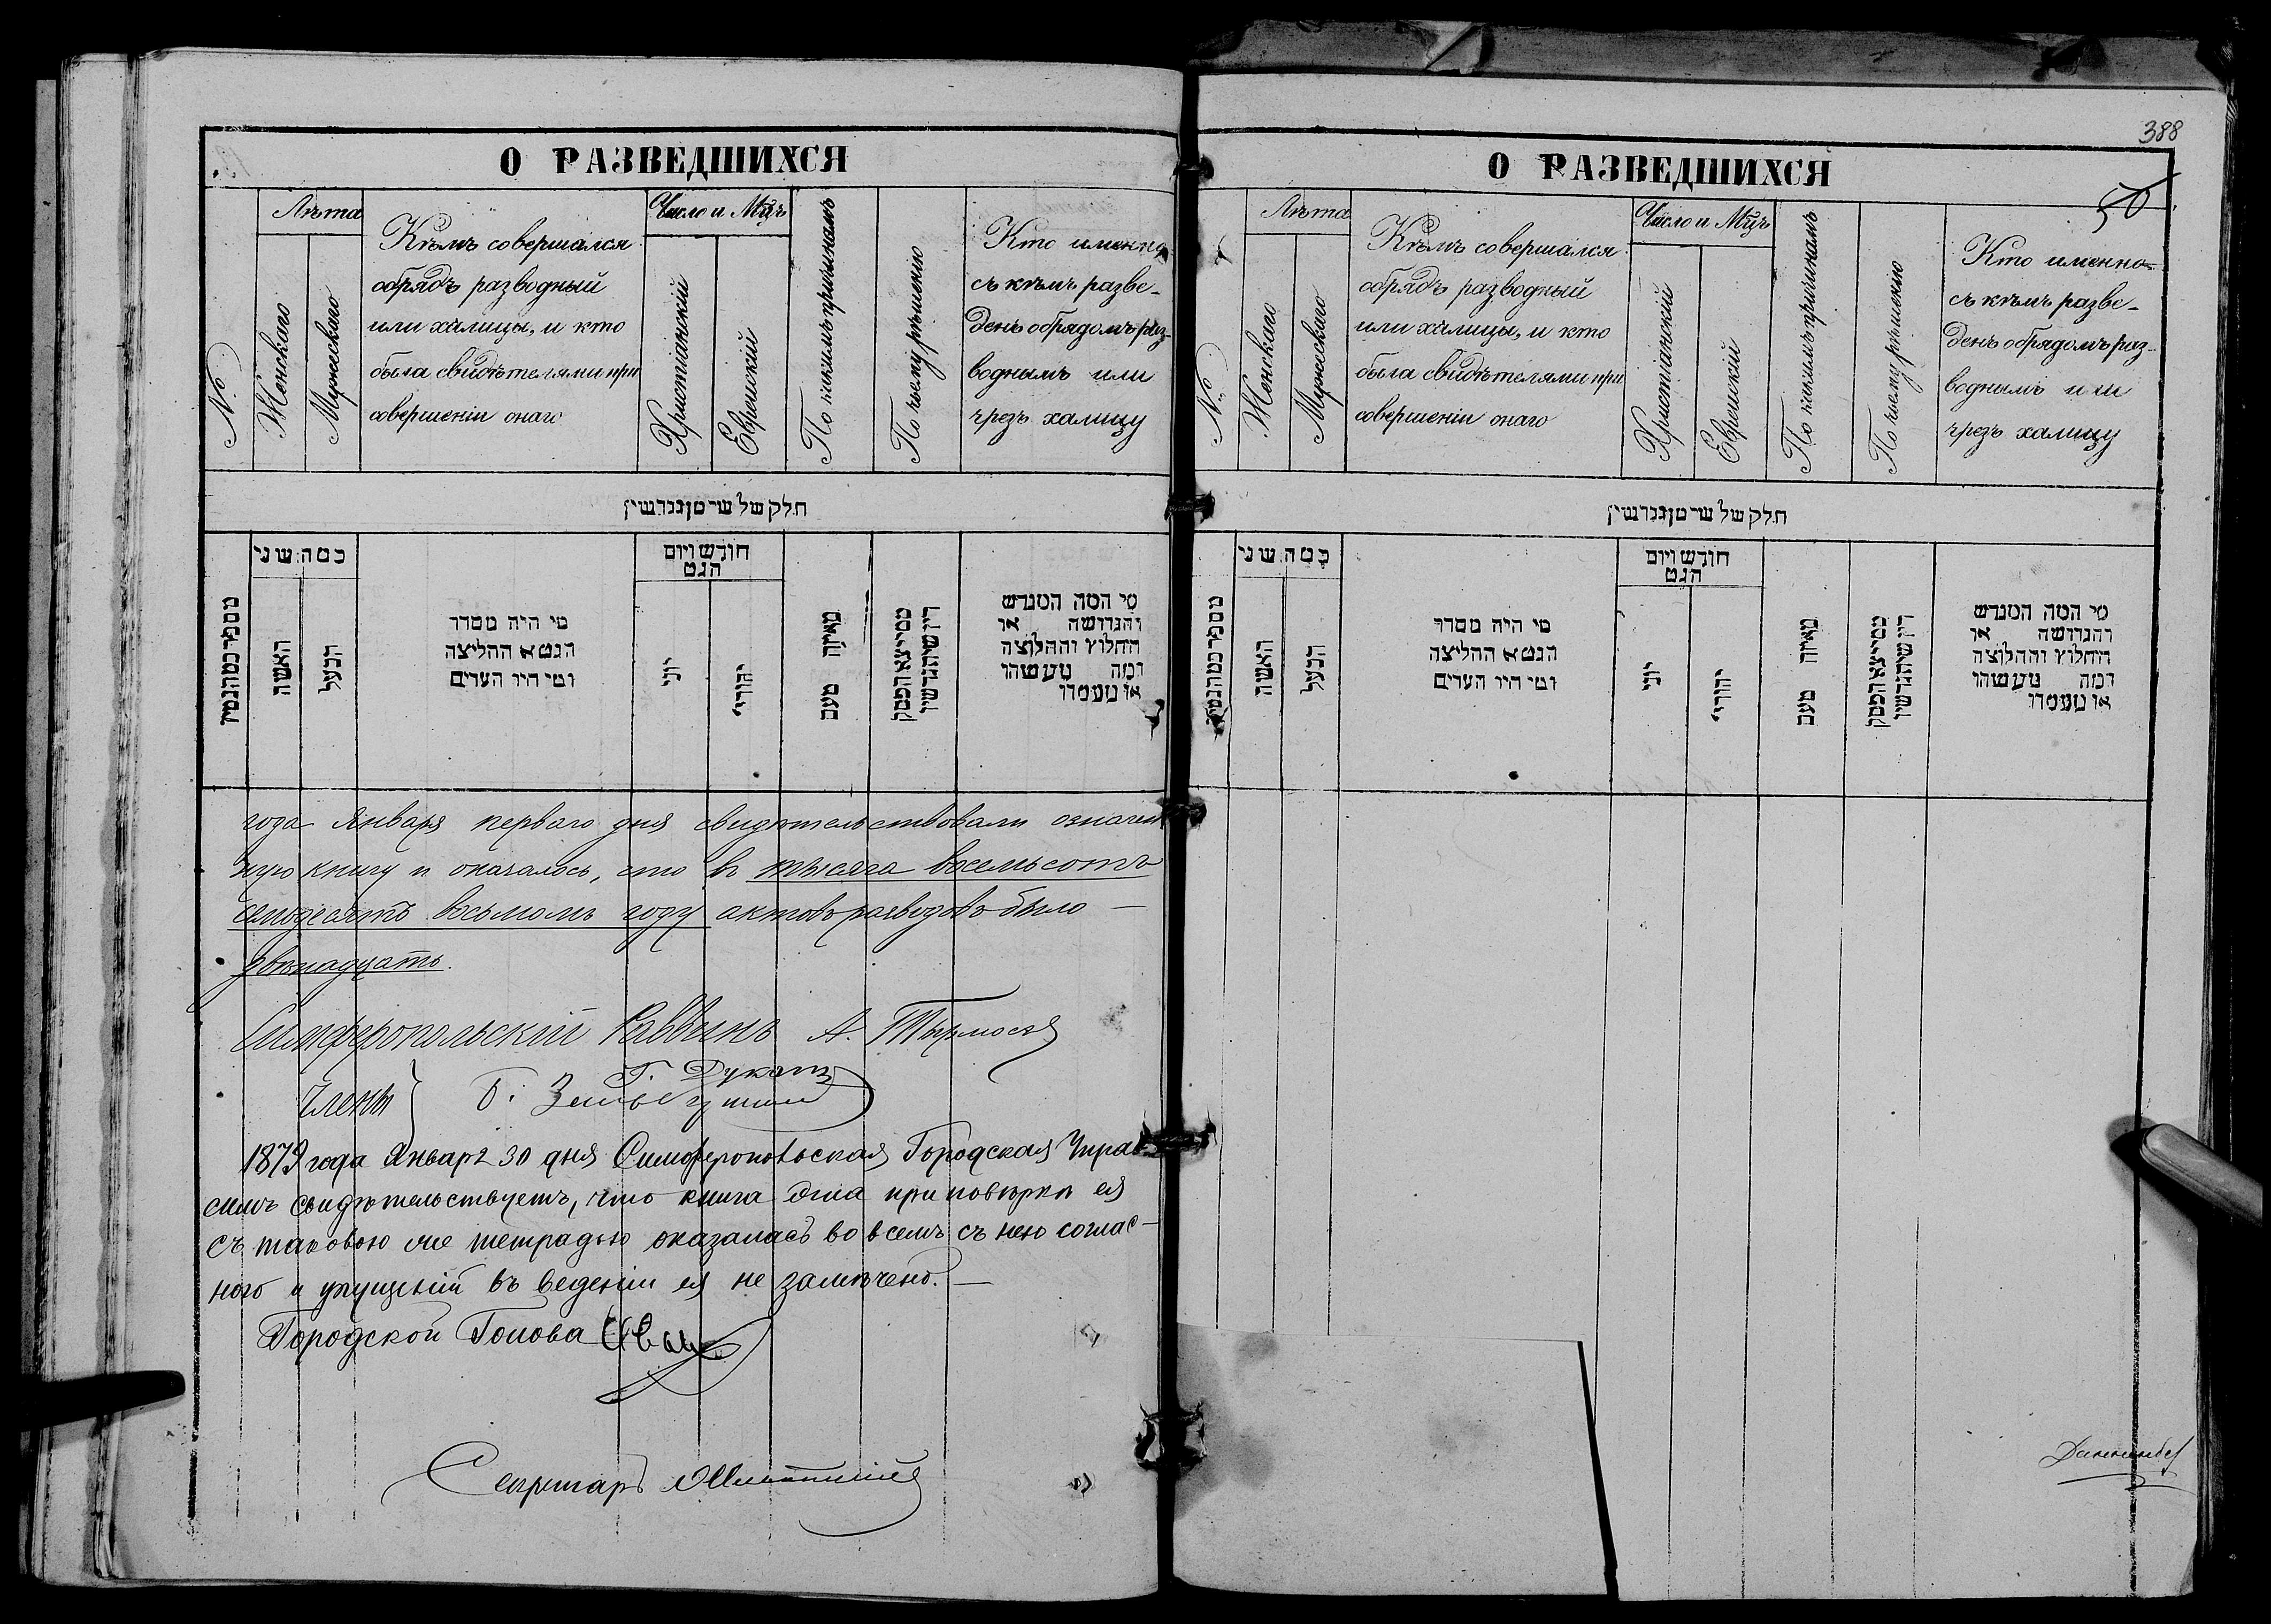 388
50
О РАЗВЕДШИХСЯ
№
Лѣта
Женскаго
Мужескаго
Кѣмъ совершался
обрядъ разводный
или халицы, и кто
была свидѣтелями при
совершеніи онаго
Число и Мцъ
Христіанскій
Еврейскій
По какимъ причинамъ
По чьему рѣшенію
Кто именно
съ кѣмъ разве-
денъ обрядомъ раз-
воднымъ или
чрезъ халицу
חלק של שי מן גרושין
כמה שני
האשה
הבעל
מי היה מסדר
הגט א החליצה
ומי היו העדים
חודש ויום
הגט
יוני
יהודי
מאיזה טעם
מי המה המגרש
והגרושה או
החלוץ והחלוצה
ומה מעשהו
או מעמדו
года Января перваго дня свидѣтельствовали означен
ную книгу и оказалось, что въ тысяча восемьсотъ
семдесятъ восьмомъ году актовъ разводовъ было —
двѣнадцать.
Симферопольскій Раввинъ А.
Г. Дуканъ
Члены } Б.
1879 года Января 30 дня Симферопольская Городская Управа
симъ свидѣтельствуетъ, что книга эта при повѣркѣ ея
съ таковою же тетрадью оказалась во всемъ съ нею соглас-
ною и упущеній въ веденіи ея не замѣчено. —
Городской Голова
Секретарь
О РАЗВЕДШИХСЯ
№
Лѣта
Женскаго
Мужескаго
Кѣмъ совершался
обрядъ разводный
или халицы, и кто
была свидѣтелями при
совершеніи онаго
Число и Мцъ
Христіанскій
Еврейскій
По какимъ причинамъ
По чьему рѣшенію
Кто именно
съ кѣмъ разве-
денъ обрядомъ раз-
воднымъ или
чрезъ халицу
חלק של שי מן גרושין
כמה שני
האשה
הבעל
מי היה מסדר
הגט א החליצה
ומי היו העדים
חודש ויום
הגט
יוני
יהודי
מאיזה טעם
מי המה המגרש
והגרושה או
החלוץ והחלוצה
ומה מעשהו
או מעמדו